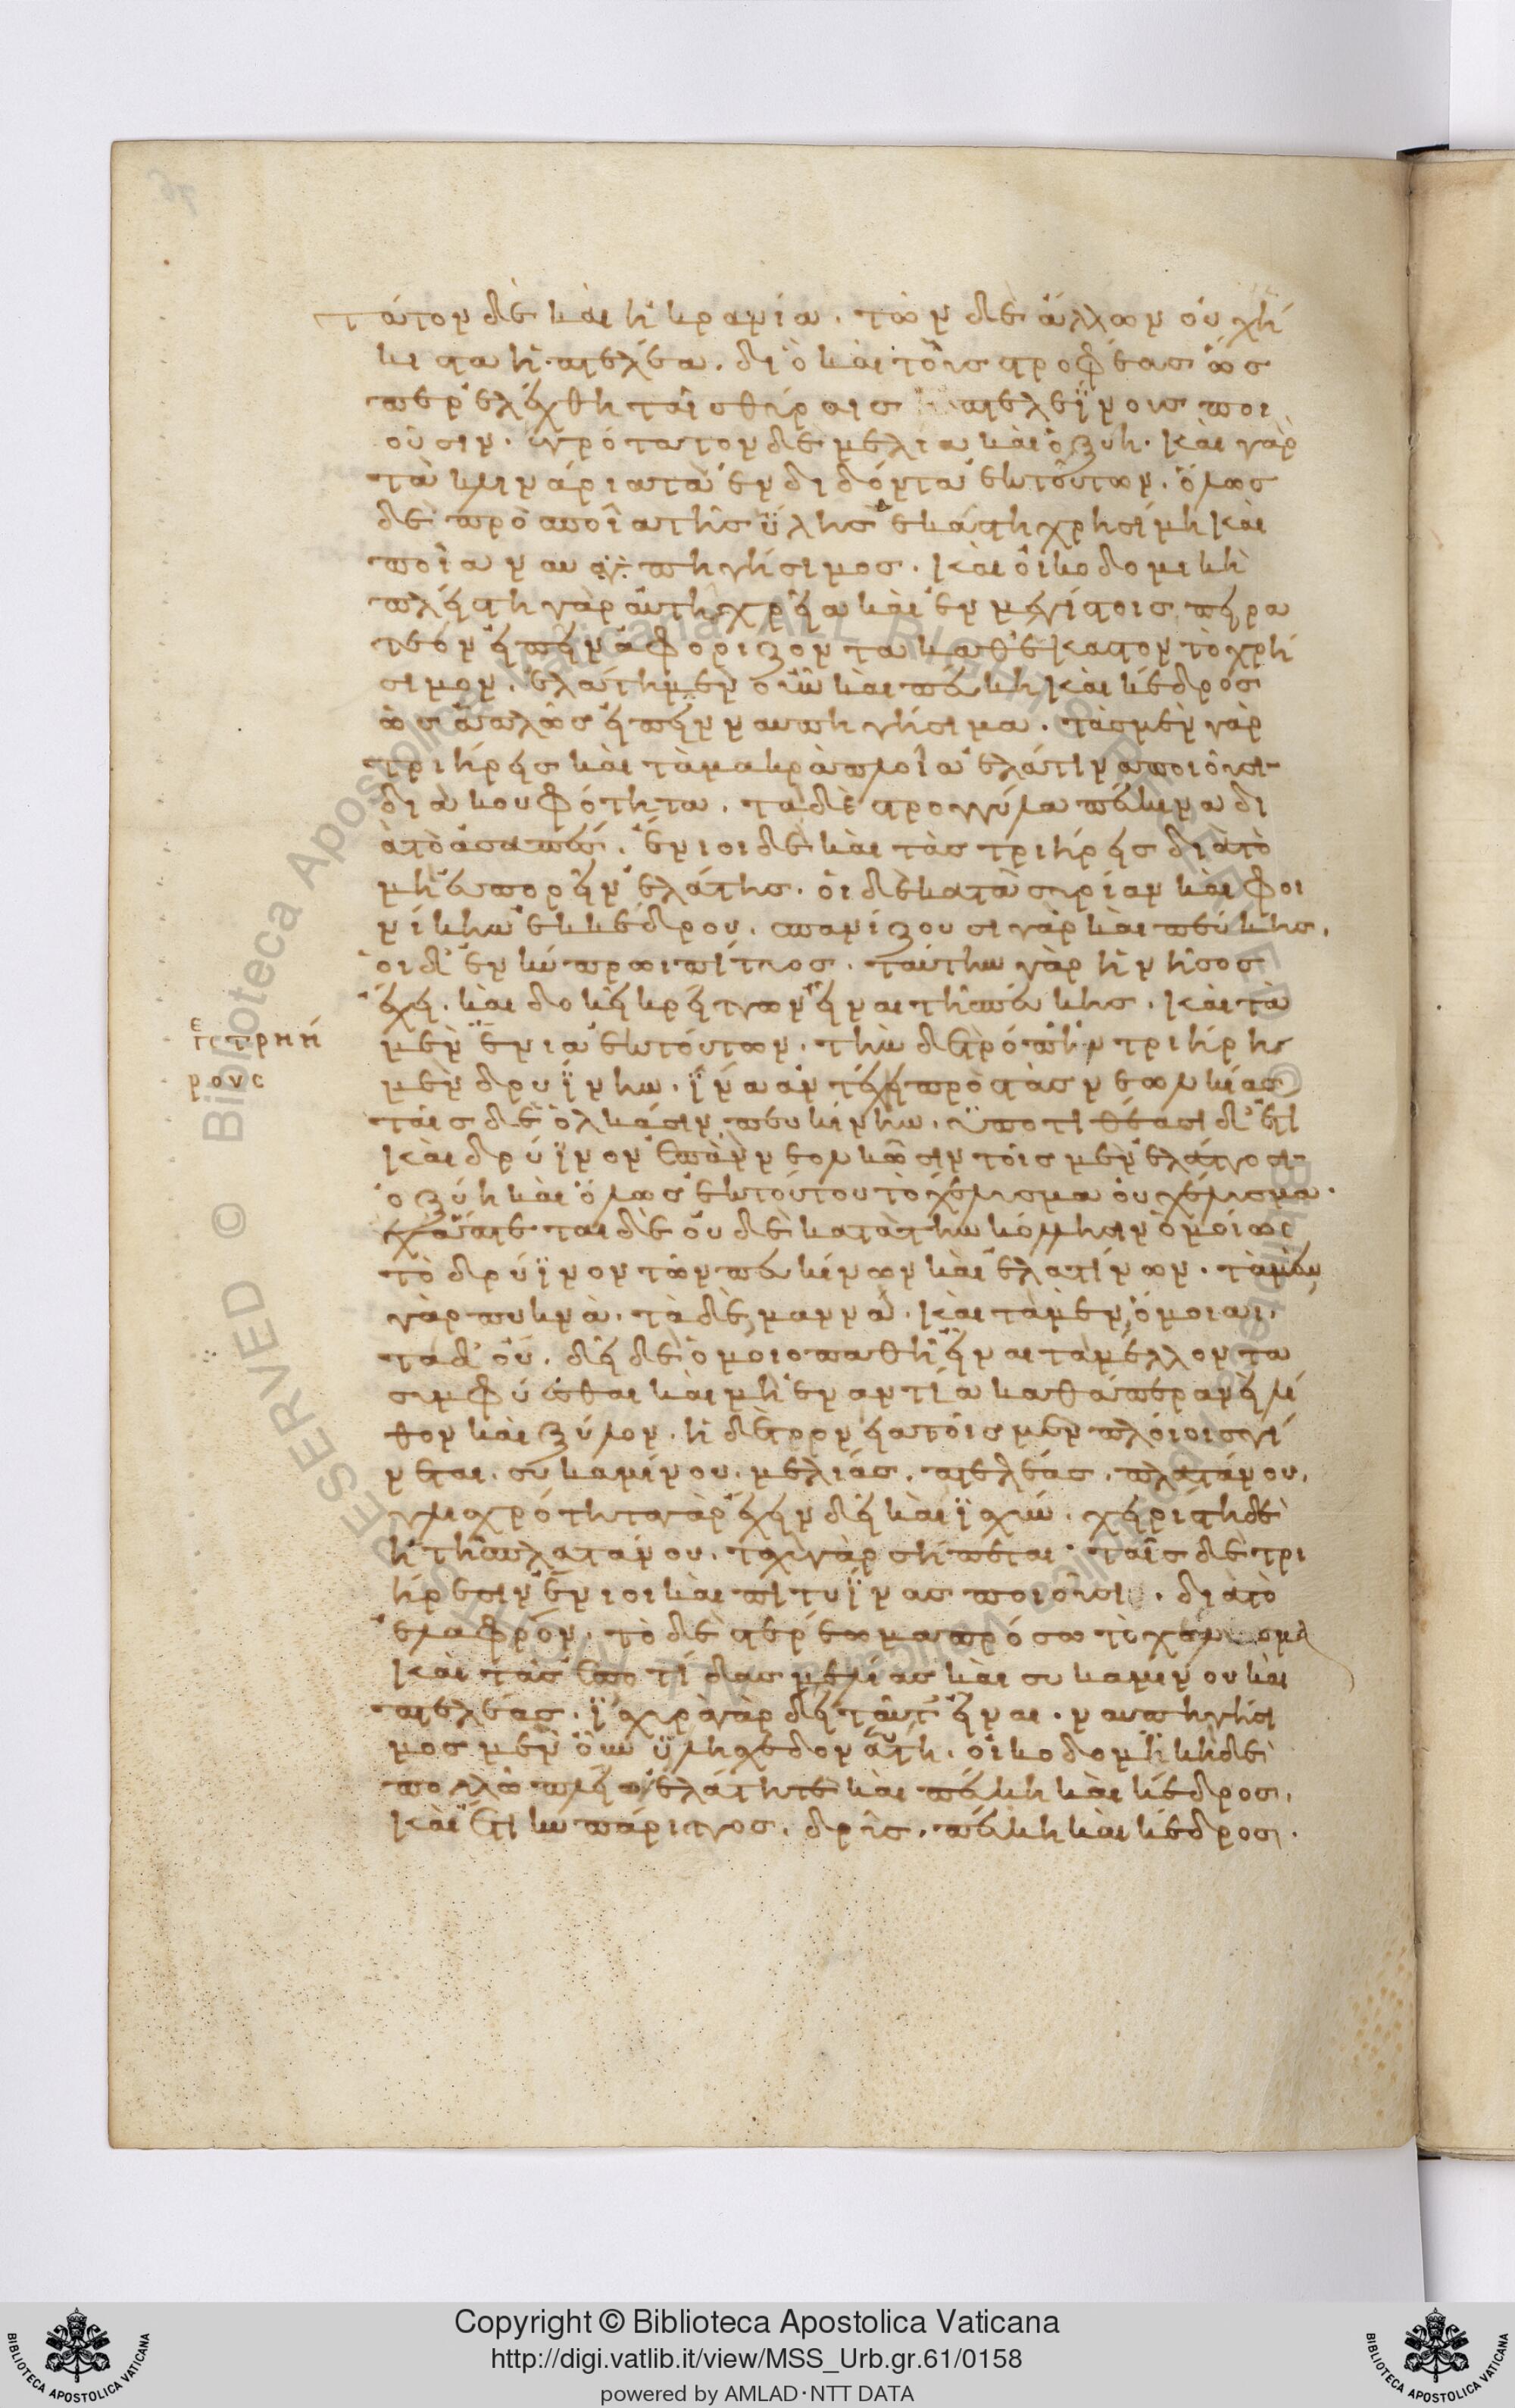 τατον δὲ καὶ ἡ κρανία. τῶν δὲ ἄλλων οὐχ ἥ
κιστα ἡ πτελέα. διὸ καὶ τοὺς στροφέας ὥσ
περ ἐλέχθη ταῖς θύραις πτελεΐνους ποι
οῦσιν. ὑγρότατον δὲ μελία καὶ ὀξύη. καὶ γὰρ
τὰ κλινάρια τὰ ἐνδιδόντα ἐκ τούτων. ὅλως
δὲ πρὸ ποῖα τῆς ὕλης ἑκάστη χρησίμη καὶ
ποία ναυπηγήσιμος. καὶ οἰκοδομικὴ
πλείστη γὰρ αὕτη χρεία καὶ ἐν μεγίστοις πειρα
τέον εἰπεῖν ἀφορίζοντα καθ' ἕκαστον τὸ χρή
σιμον. ἐλάτη μὲν οὖν καὶ πεύκη καὶ κέδρος
ὡς ἁπλῶς εἰπεῖν ναυπηγήσιμα. τὰς μὲν γὰρ
τριήρεις καὶ τὰ μακρὰ πλοῖα ἐλάτινα ποιοῦσι
διὰ κουφότητα. τὰ δὲ στρογγύλα πεύκινα δι
ὰ τὸ ἀσαπές. ἔνιοι δὲ καὶ τὰς τριήρεις διὰ τὸ
μὴ εὐπορεῖν ἐλάτης. οἱ δὲ κατὰ συρίαν καὶ φοι
νίκην ἐκ κέδρου. σπανίζουσι γὰρ καὶ πεύκης.
οἱ δ' ἐν κύπρωι πίτυος. ταύτην γὰρ ἡ νῆσος
ἔχει. καὶ δοκεῖ κρείττων εἶναι τῆς πεύκης. καὶ τὰ
μὲν ἔνια ἐκ τούτων. τὴν δὲ τρόπιν τριήρης
μὲν δρυΐνην. ἵνα ἀντέχη πρὸς τὰς νεωλκίας
ταῖς δὲ ὁλκάσιν πευκίνην. ὑποτιθέασι δ' ἔτι
καὶ δρύϊνον ἐπὰν νεολκῶσιν τοῖς μὲν ἐλάττοσι
ὀξύη καὶ ὅλως ἐκ τούτου τὸ χέλυσμα οὐ χέλυσμα.
ἅπτεται δὲ οὐδὲ κατὰ τὴν κόλλησιν ὁμοίως
τὸ δρύϊνον τῶν πευκίνων καὶ ἐλατίνων. τὰ μὲν
γὰρ πυκνὰ. τὰ δὲ μαννά. καὶ τὰ μὲν ὅμοιαι.
τὰ δ' οὔ. δεῖ δὲ ὁμοιοπαθῆ εἶναι τὰ μέλλοντα
συμφύεσθαι καὶ μὴ ἐναντία καθάπερ ανεὶ λί
θον καὶ ξύλον. ἡ δὲ τορνεία τοῖς μὲν πλοίοις γί
νεται. συκαμίνου. μελίας. πτελέας. πλατάνου.
γλισχρότητα γὰρ ἔχειν δεῖ καὶ ἰσχύν. χειρίστη δὲ
ἡ τῆς πλατάνου. ταχὺ γὰρ σήπεται. ταῖς δὲ τρι
ήρεσιν ἔνιοι καὶ πιτυΐνας ποιοῦσι. διὰ τὸ
ἐλαφρόν. τὸ δὲ στερέωμα πρόσω τὸ χέλυσμα
καὶ τὰς ἐπωτίδας μελίας καὶ συκαμίνου καὶ
πτελέας. ἰσχυρὰ γὰρ δεῖ ταῦτ' εἶναι. ναυπηγήσι
μος μὲν οὖν ὕλη σχεδὸν αὕτη. οἰκοδομικὴ δὲ
πολλῷ πλείων ἐλάτη τε καὶ πεύκη καὶ κέδρος.
καὶ ἔτι κυπάριττος. δρῦς. πεύκη καὶ κέδρος.
ἐτετρηή
ρους
Copyright © Biblioteca Apostolica Vaticana
http://digi.vatlib.it/view/MSS_Urb.gr.61/0158
powered by AMLAD·NTT DATA
BIBLIOTECA APOSTOLICA VATICANA
BIBLIOTECA APOSTOLICA VATICANA